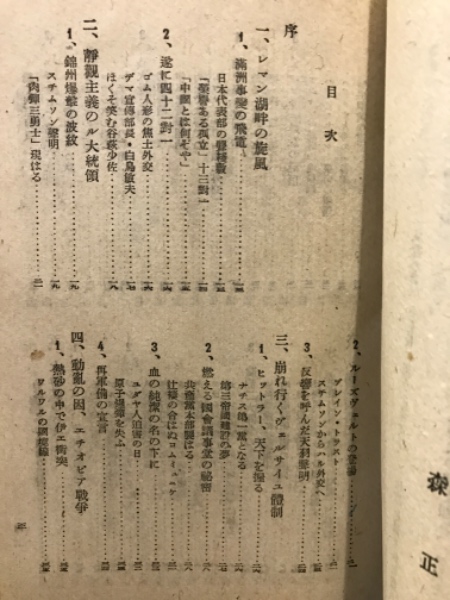 目次
序
一、レマン湖畔の旋風
1、滿洲事變の飛電
日本代表部の
「榮譽ある孤立」十三對一
「中國とは何ぞや」
2、遂に四十二對一
ゴム人形の焦土外交
デマ宣傳部長・白鳥敏夫
ほくそ笑む谷萩少佐
二、靜觀主義のル大統領
1、錦州爆撃の波紋
スチムソン聲明
「肉彈三勇士」現はる
2、ルーズヴェルトの登場
ブレイン・トラスト
スチムソンからハル外交へ
3、反響を呼んだ天羽聲明
三、崩れ行くヴェルサイユ體制
1、ヒットラー、天下を握る
ナチス第一黨となる
第三帝國建設の夢
2、燃える國會議事堂の秘密
共産黨本部襲はる
辻褄の合はぬコムミュニケ
3、血の純潔の名の下に
ユダヤ人泊害の日
原子爆彈を失ふ
4、再軍備の宣言
四、動亂の因、エチオピア戰爭
1、熱砂の中で伊エ衝突
ワルワルの
森正